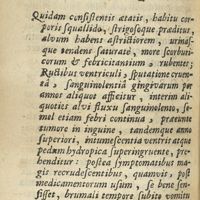 Quidam consistentis ætatis, habitu cor-
poris squallido, strigosoque præditus,
alvum habens astrictiorem, urinas-
que reddens saturatè, more scorbuti-
corum & febricitantium, rubentes;
Ructibus ventriculi, sputatione cruen-
ta, sanguinolentia gingivarum per
annos aliquot afficitur, interim ali-
quoties alvi fluxu sanguinolento, se-
mel etiam febri continua, præunte
tumore in inguine, tandemque anno
superiori, intumescentia ventris atque
pedum hydropica superingruente, pre-
henditur: postea symptomatibus ma-
gis recrudescentibus, quamvis, post
medicamentorum usum, se bene sen-
sisset, brumali tempore subito vomitu